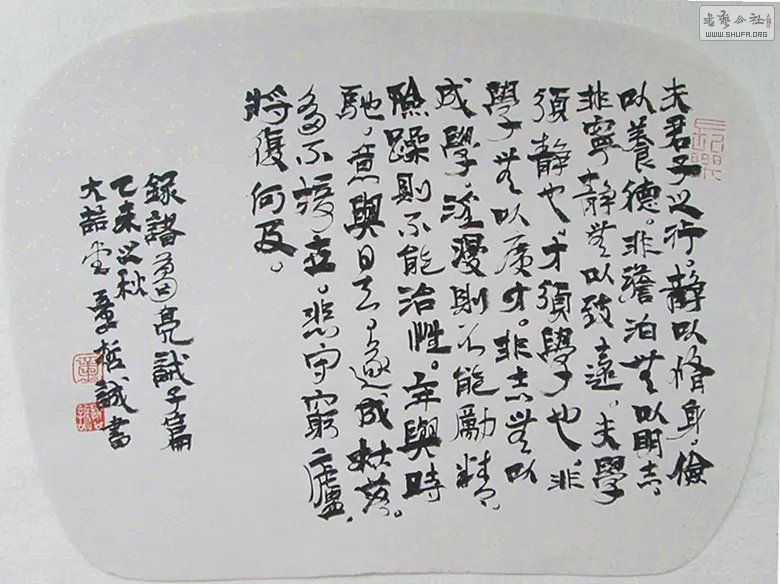 夫君子之行。靜以脩身。儉
以養德。非澹泊無以明志。
非寧靜無以致遠。夫學
須靜也。才須學也。非
學無以廣才。非志無以
成學。淫漫則不能勵精。
險躁則不能治性。年與時
馳。意與日去。遂成枯落。
多不接世。悲守窮廬。
將復何及。
錄諸葛亮誡子篇
乙未之秋
大喆堂童哲誠書
書藝公社
WWW.SHUFA.ORG